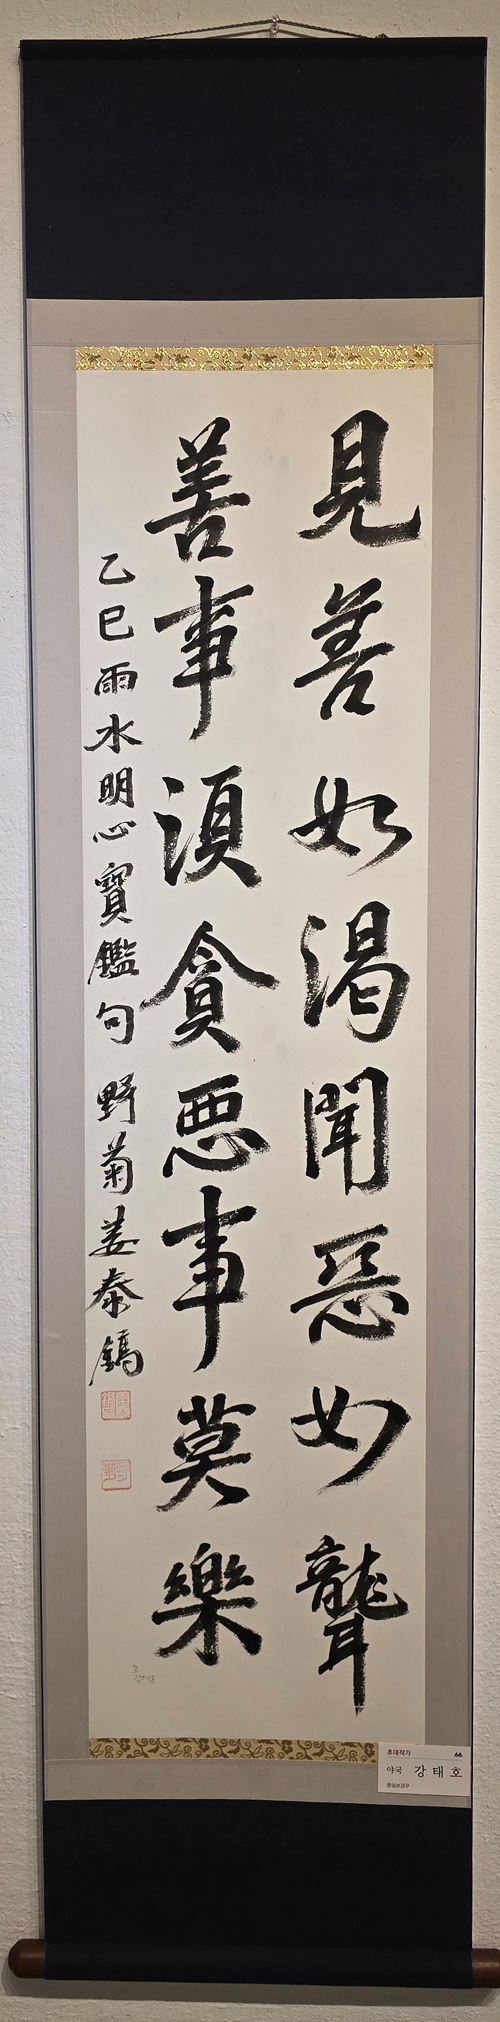 見善如渴聞惡如聾
善事須貪悪事莫樂
乙巳雨水明心寶鑑句 野菊姜泰鎬
초대작가
야국 강태호
명심보감구